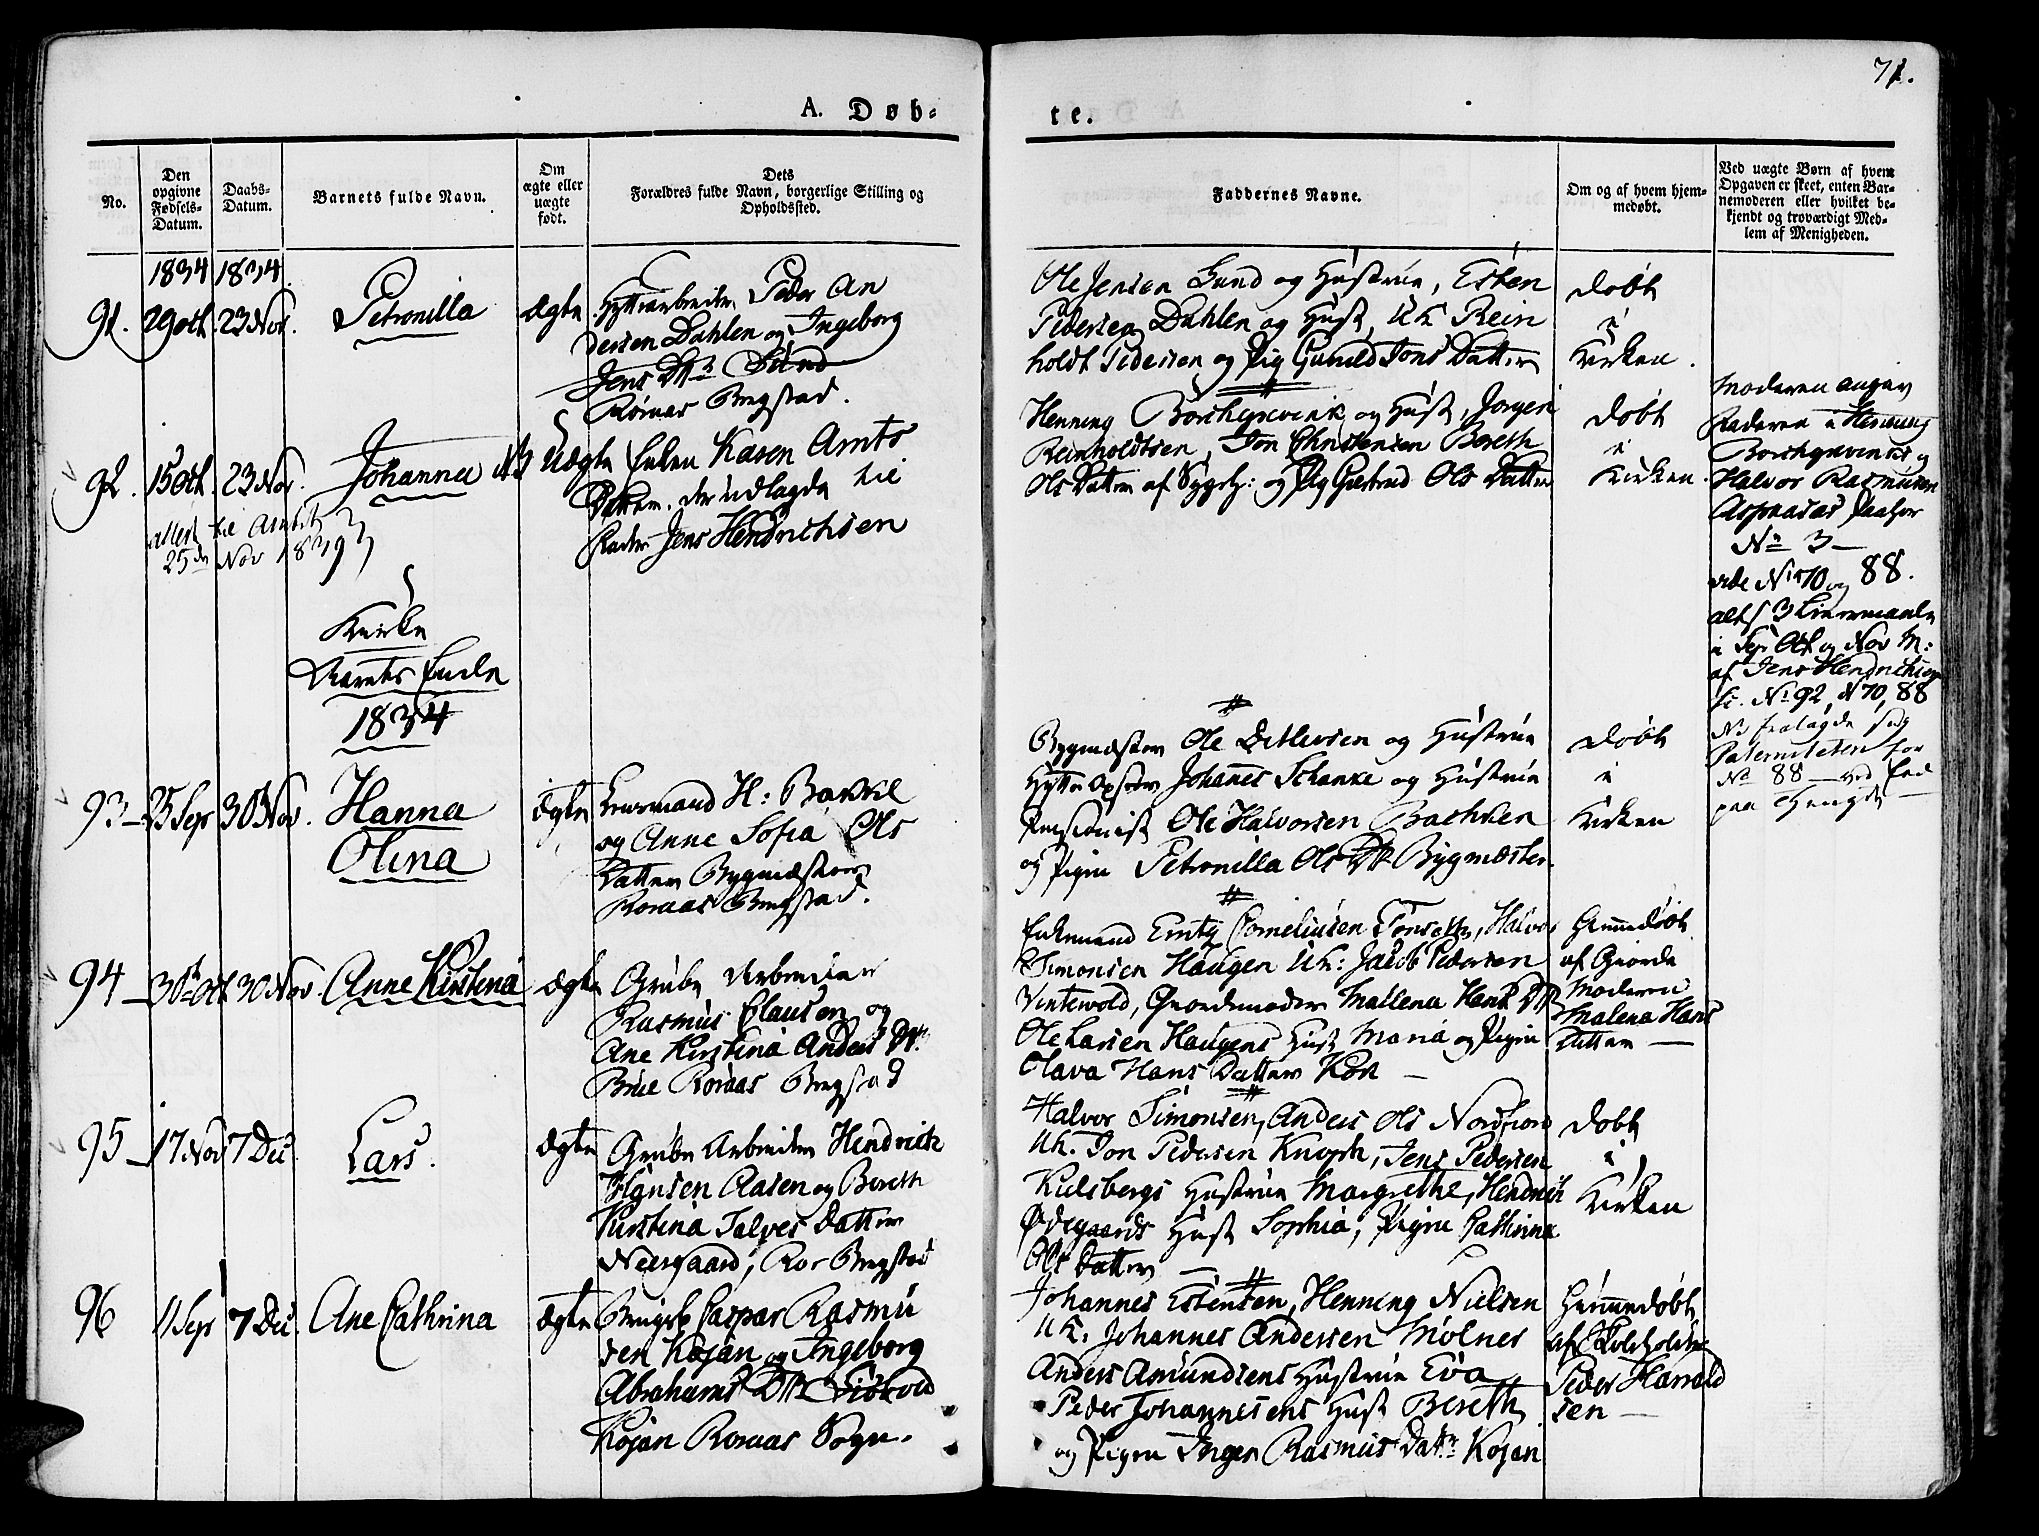 71.
A. Døb-
te.
No.
Den
opgivne
Fødsels-
Datum.
Daabs-
Datum.
Barnets fulde Navn.
Om
ægte eller
uægte
født.
Dets
Forældres fulde Navn, borgerlige Stilling og
Opholdssted.
Faddernes Navne.
Om og af hvem hjem-
medøbt.
Ved uægte Børn af hvem
Opgaven er skeet, enten Bar-
nemoderen eller hvilket be-
kjendt og troværdigt Med-
lem af Menigheden.
1834 1834
91. 29 Oct. 23 Nov. Petronilla Ægte
Hyttearbeider Peder An
dersen Dahlen og Ingeborg
Jens Dtr Sund
Røraas Bergstad.
Ole Jensen Sund og Hustrue, Esten
Pedersen Dahlen og Hust, UK Rein
holdt Pedersen og Pig Gunild Jons Datter
Døbt
i
Kirken.
92. 15 Oct. 23 Nov. Johanna NB Uægte
Enken Karen Arnts
Datter. der udlagde til
Fader Jens Hendrichsen
attest til Amtet
25de Nov 1839
Henning Borchgrevink og Hust, Jørgen
Reinholdtsen, Jon Christensen Bereth
Ols Datter af Sygeh: og Pig Giertrud Ols Datter
Døbt
i
Kirken.
Moderen angav
Faderen Henning
Borchgrevink og
Halvor Rasmusen
Aspaaas
No 3
vide No 70 og 88.
alts 3 Leiermaale
i Sep Oct og Nov M:
af Jens Hendrichsen
No 92, 70, 88
No fralagde sig
Paterniteten for
No 88 ved Eed
paa Thinget
Kirke
Aarets Ende
1834
93 25 Sep 30 Nov. Hanna
Olina
Ægte
Lensmand H: Bakkel
og Anne Sofia Ols
Datter Bygmæster
Roraas Bergstad.
Bygmæster Ole Ditlevsen og Hustrue
Hytte Johannes Schanke og Hustrue
Pensionist Ole Halvorsen Bachken
og Pigen Petronilla Ols Dtr Bygmæster.
Døbt
i
Kirken
94 30 Oct 30 Nov. Anne Kirstina Ægte
Grube Arbeider
Rasmus Clausen og
Ane Kirstina Anders Dtr
Brue Roraas Bergstad
Enkemand Corneliusen Tønseth, Halvor
Simonsen Haugen UK: Jacob Pedersen
Vintervold, Giordemoder Mallena Hans Dtr
Ole Larsen Haugens Hust Maria og Pigen
Olava Hans Datter Kørt
Hiemmedøbt
af Giorde
Moderen
Malena Hans
Datter
95 17 Nov 7 Dec. Lars. Ægte
Grube Arbeider Hendrich
Hansen Aasen og Bereth
Kirstina Talges Datter
Neergaard, Ror Bergstad
Halvor Simonsen, Anders Ols Nordfiord
UK. Jon Pedersen Knoph, Jens Pedersen
Kulsbergs Hustrue Margrethe, Hendrich
Ødegaards Hust Sophia; Pigen Cathrina
Ols Datter
Døbt
i
Kirken
96 11 Sep 7 Dec. Ane Cathrina Ægte
Bergsk Caspar Rasmu
sen Kojan og Ingeborg
Abrahams Dtr Siøvold
Kojan Roraas Sogn.
Johannes Estensen, Henning Nielsen
UK. Johannes Andersen Molnes
Anders Amundsens Hustrue Eva
Peder Johannesens Hust Bereth
og Pigen Inger Rasmus Datr Kojan
Hiemmedøbt
af Skoleholder
Peder Harald
sen